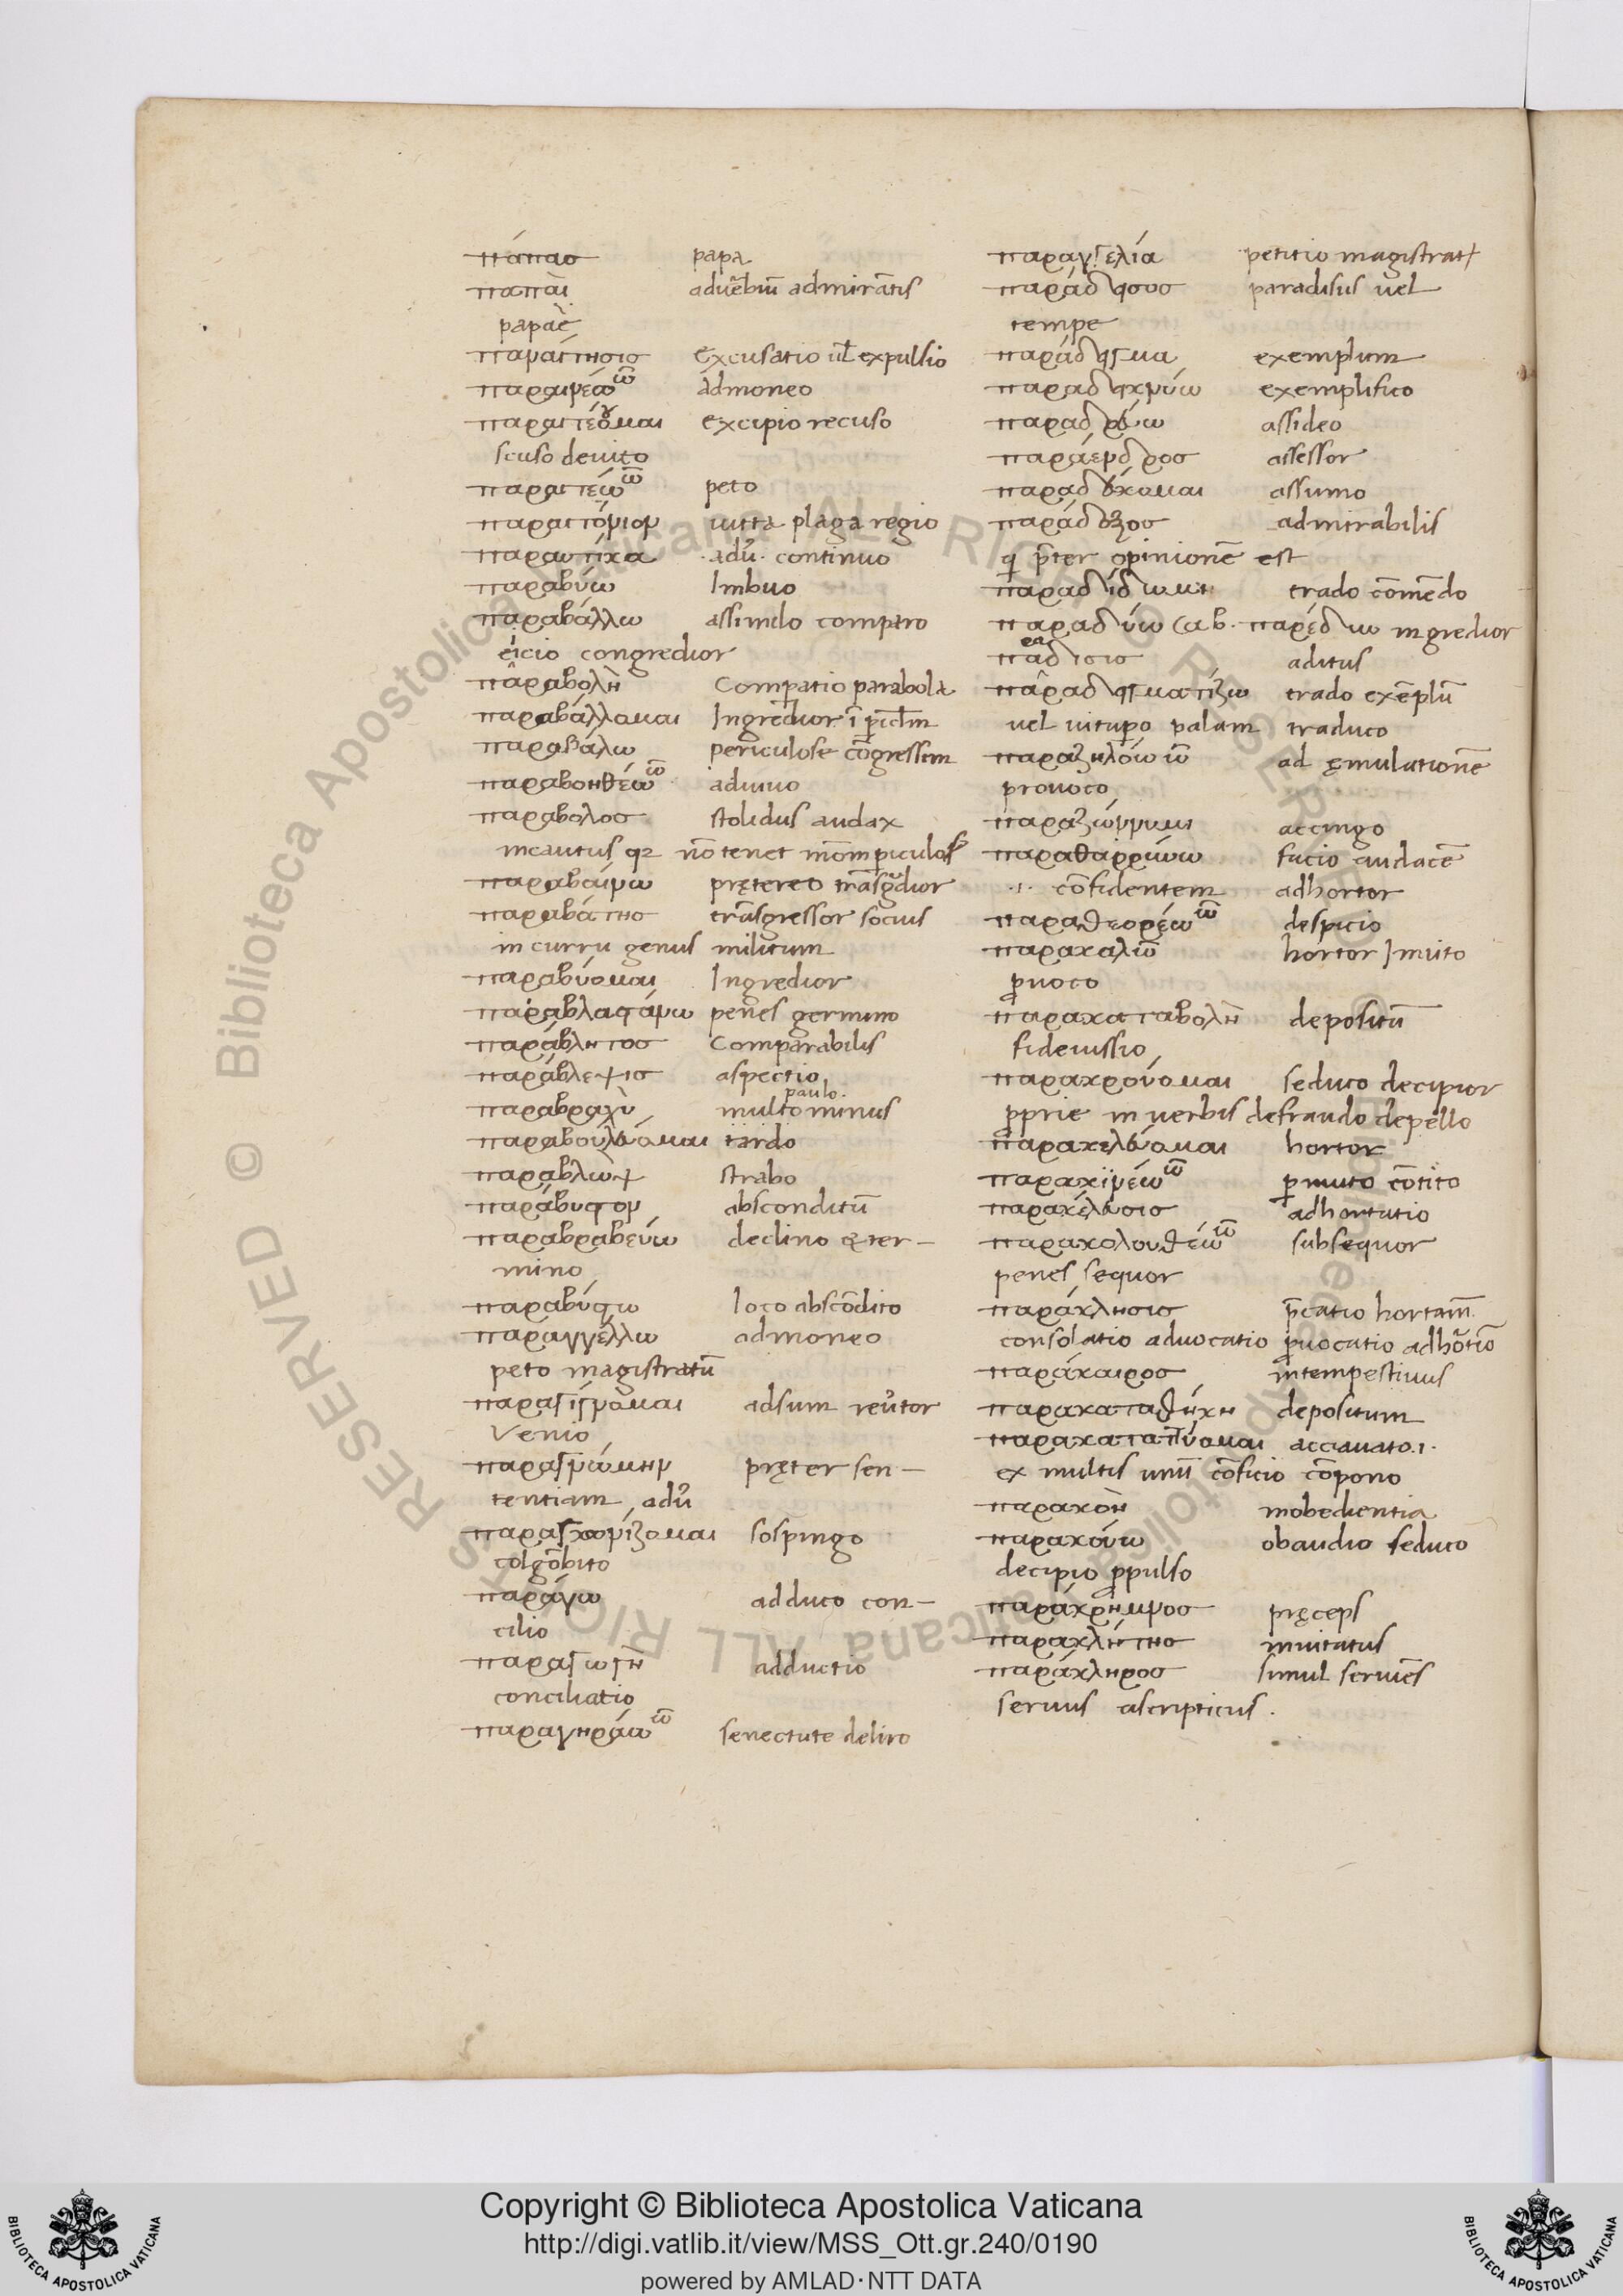 πάπασ papa
παπαὶ adue᷒biū admirātis
papaè
παραίτησισ excusatio ul̄ expulsio
παραινέω ῶ admoneo
παραιτέομαι excipio recuso
scuso deuito
παραιτέω ῶ peto
παραιτόνιον iuxta plaga regio
παραυτίκα adu̓. continuo
παραβύω Imbuo
παραβάλλω assimilo comparo
eiicio congredior
παραβολὴ Comꝑatio parabola
παραβάλλομαι Ingredior ī ꝑicl̄m
παραβάλω periculose cōgressum
παραβοηθέω ῶ adiuuo
παραβολοσ stolidus audax
incautus qꝫ nō tenet
παραβαίνω prętereo trāsgredior
παραβάτησ trāsgressor socius
in curru genus militum
παραβύομαι Ingredior
παραβλαστάνω penes germino
παράβλητοσ Comparabilis
παράβλεψισ aspectio
παραβραχὺ multo paulo. minus
παραβουλεύομαι tardo
παραβλὼψ strabo
παράβυστον absconditū
παραβραβεύω declino & ter-
mino
παραβύστω loco abscōdito
παραγγέλλω admoneo
peto magistratū
παραγίγνομαι adsum
Venio
παραγνώμην pręter sen-
tentiam adu̓
παραγκωνίζομαι sospingo
παράγω adduco con-
cilio
παραγωγὴ adductio
conciliatio
παραγηράω ῶ senectute deliro
παραγγελία petitio magistrat
παράδεισοσ paradisus uel
tempe
παράδειγμα exemplum
παραδεικνύω exemplifico
παραδρεύω assideo
παράεδροσ assessor
παραδέχομαι assumo
παράδοξοσ admirabilis
q̄ p̄ter opinionē est
παραδίδωμι trado cōmēdo
παραδύω ingredior
παράδυσισ aditus
παραδειγματίζω trado exēplū
uel uituꝑo palam traduco
παραζηλόω ῶ ad ęmulationē
prouoco
παραζώννυμι accingo
παραθαρρύνω facio audacē
.i. cōfidentem adhortor
παραθεορέω ῶ despicio
παρακαλῶ hortor Inuito
ꝓuoco
παρακαταβολὴ depositū
fideiussio
παρακρούομαι seduco decipior
ꝓprie in uerbis defraudo depello
παρακελεύομαι hortor
παρακινέω ῶ ꝑmuto cōcito
παρακέλευσισ adhortatio
παρακολουθέω ῶ subsequor
penes sequor
παράκλησισ p̄catio hortam̄.
consolatio aduocatio ꝓuocatio adhōtio
παράκαιροσ intempestiuus
παρακαταθήκη depositum
ex multis unū cōficio cōpono
παρακοὴ inobedientia
παρακούω obaudio seduco
decipio ꝓpulso
παράκρημνοσ pręceps
παρακλήτησ inuitatus
παράκληροσ simul seruiēs
seruus ascripticius.
Copyright © Biblioteca Apostolica Vaticana
http://digi.vatlib.it/view/MSS_Ott.gr.240/0190
powered by AMLAD·NTT DATA
BIBLIOTECA APOSTOLICA VATICANA
BIBLIOTECA APOSTOLICA VATICANA
© Biblioteca Apostolica Vaticana ALL RIGHTS RESERVED
© Biblioteca Apostolica Vaticana ALL RIGHTS RESERVED